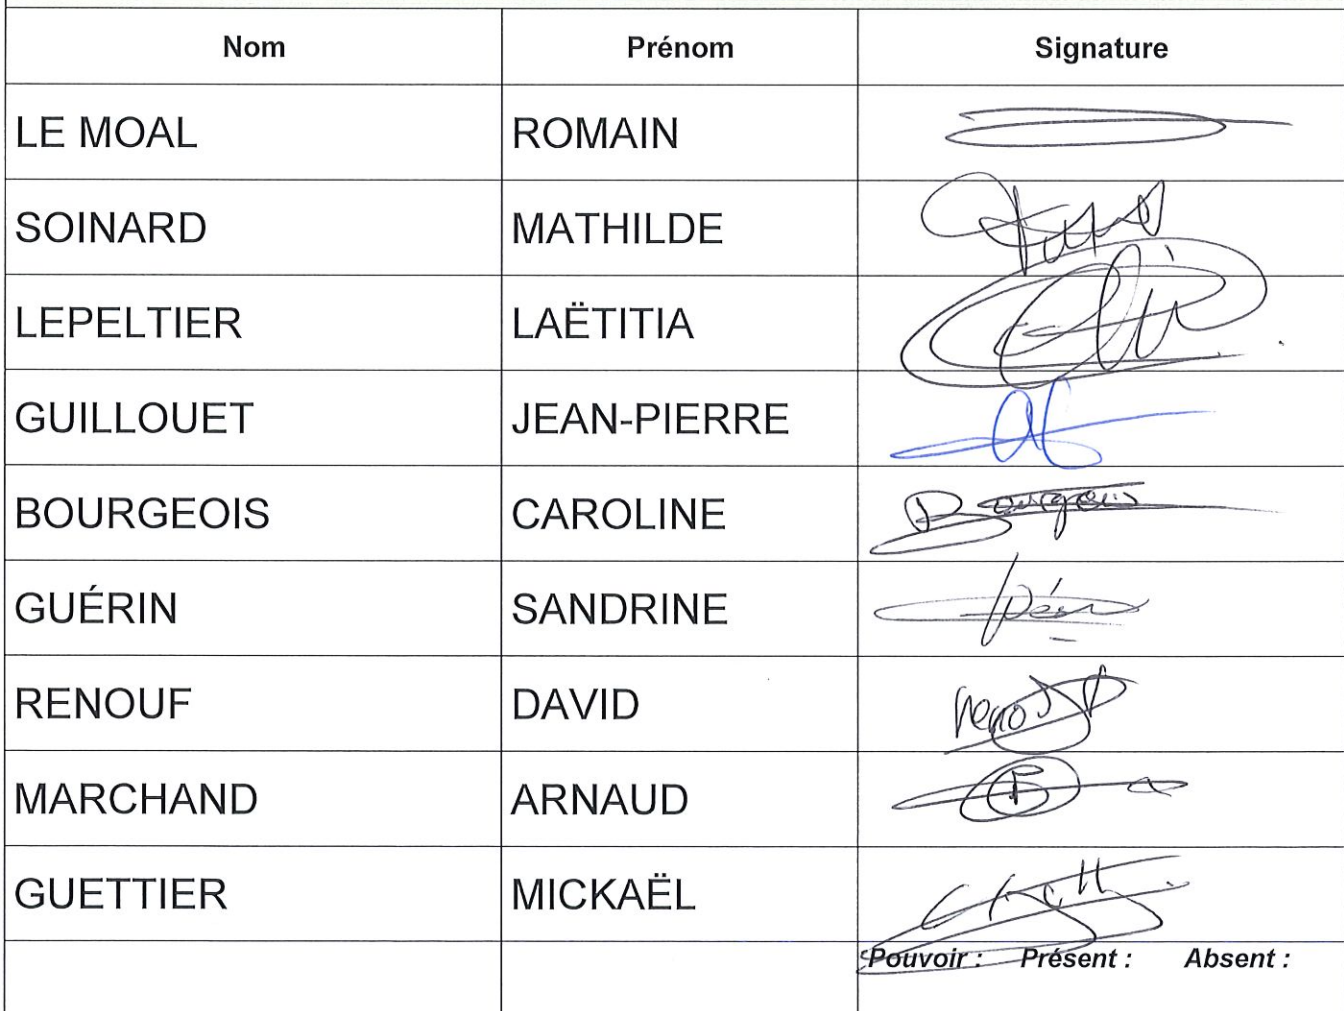 Nom Prénom Signature
LE MOAL ROMAIN
SOINARD MATHILDE
LEPELTIER LAËTITIA
GUILLOUET JEAN-PIERRE
BOURGEOIS CAROLINE Bourgeois
GUÉRIN SANDRINE
RENOUF DAVID
MARCHAND ARNAUD
GUETTIER MICKAËL
Pouvoir : Présent : Absent :